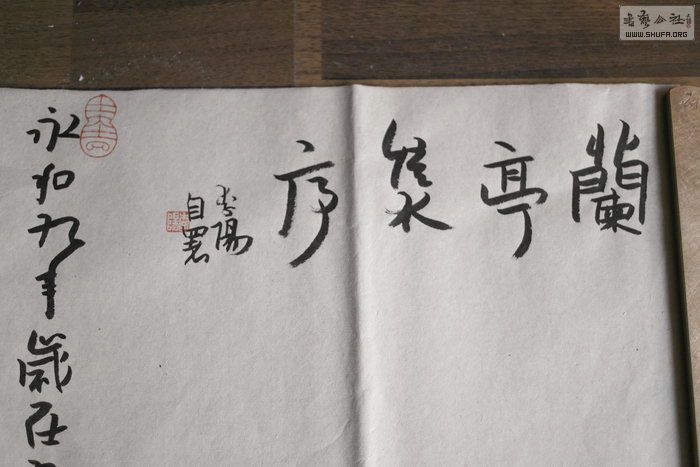 蘭亭集序
陽
自署
永和九年歲在
書藝公社
WWW.SHUFA.ORG